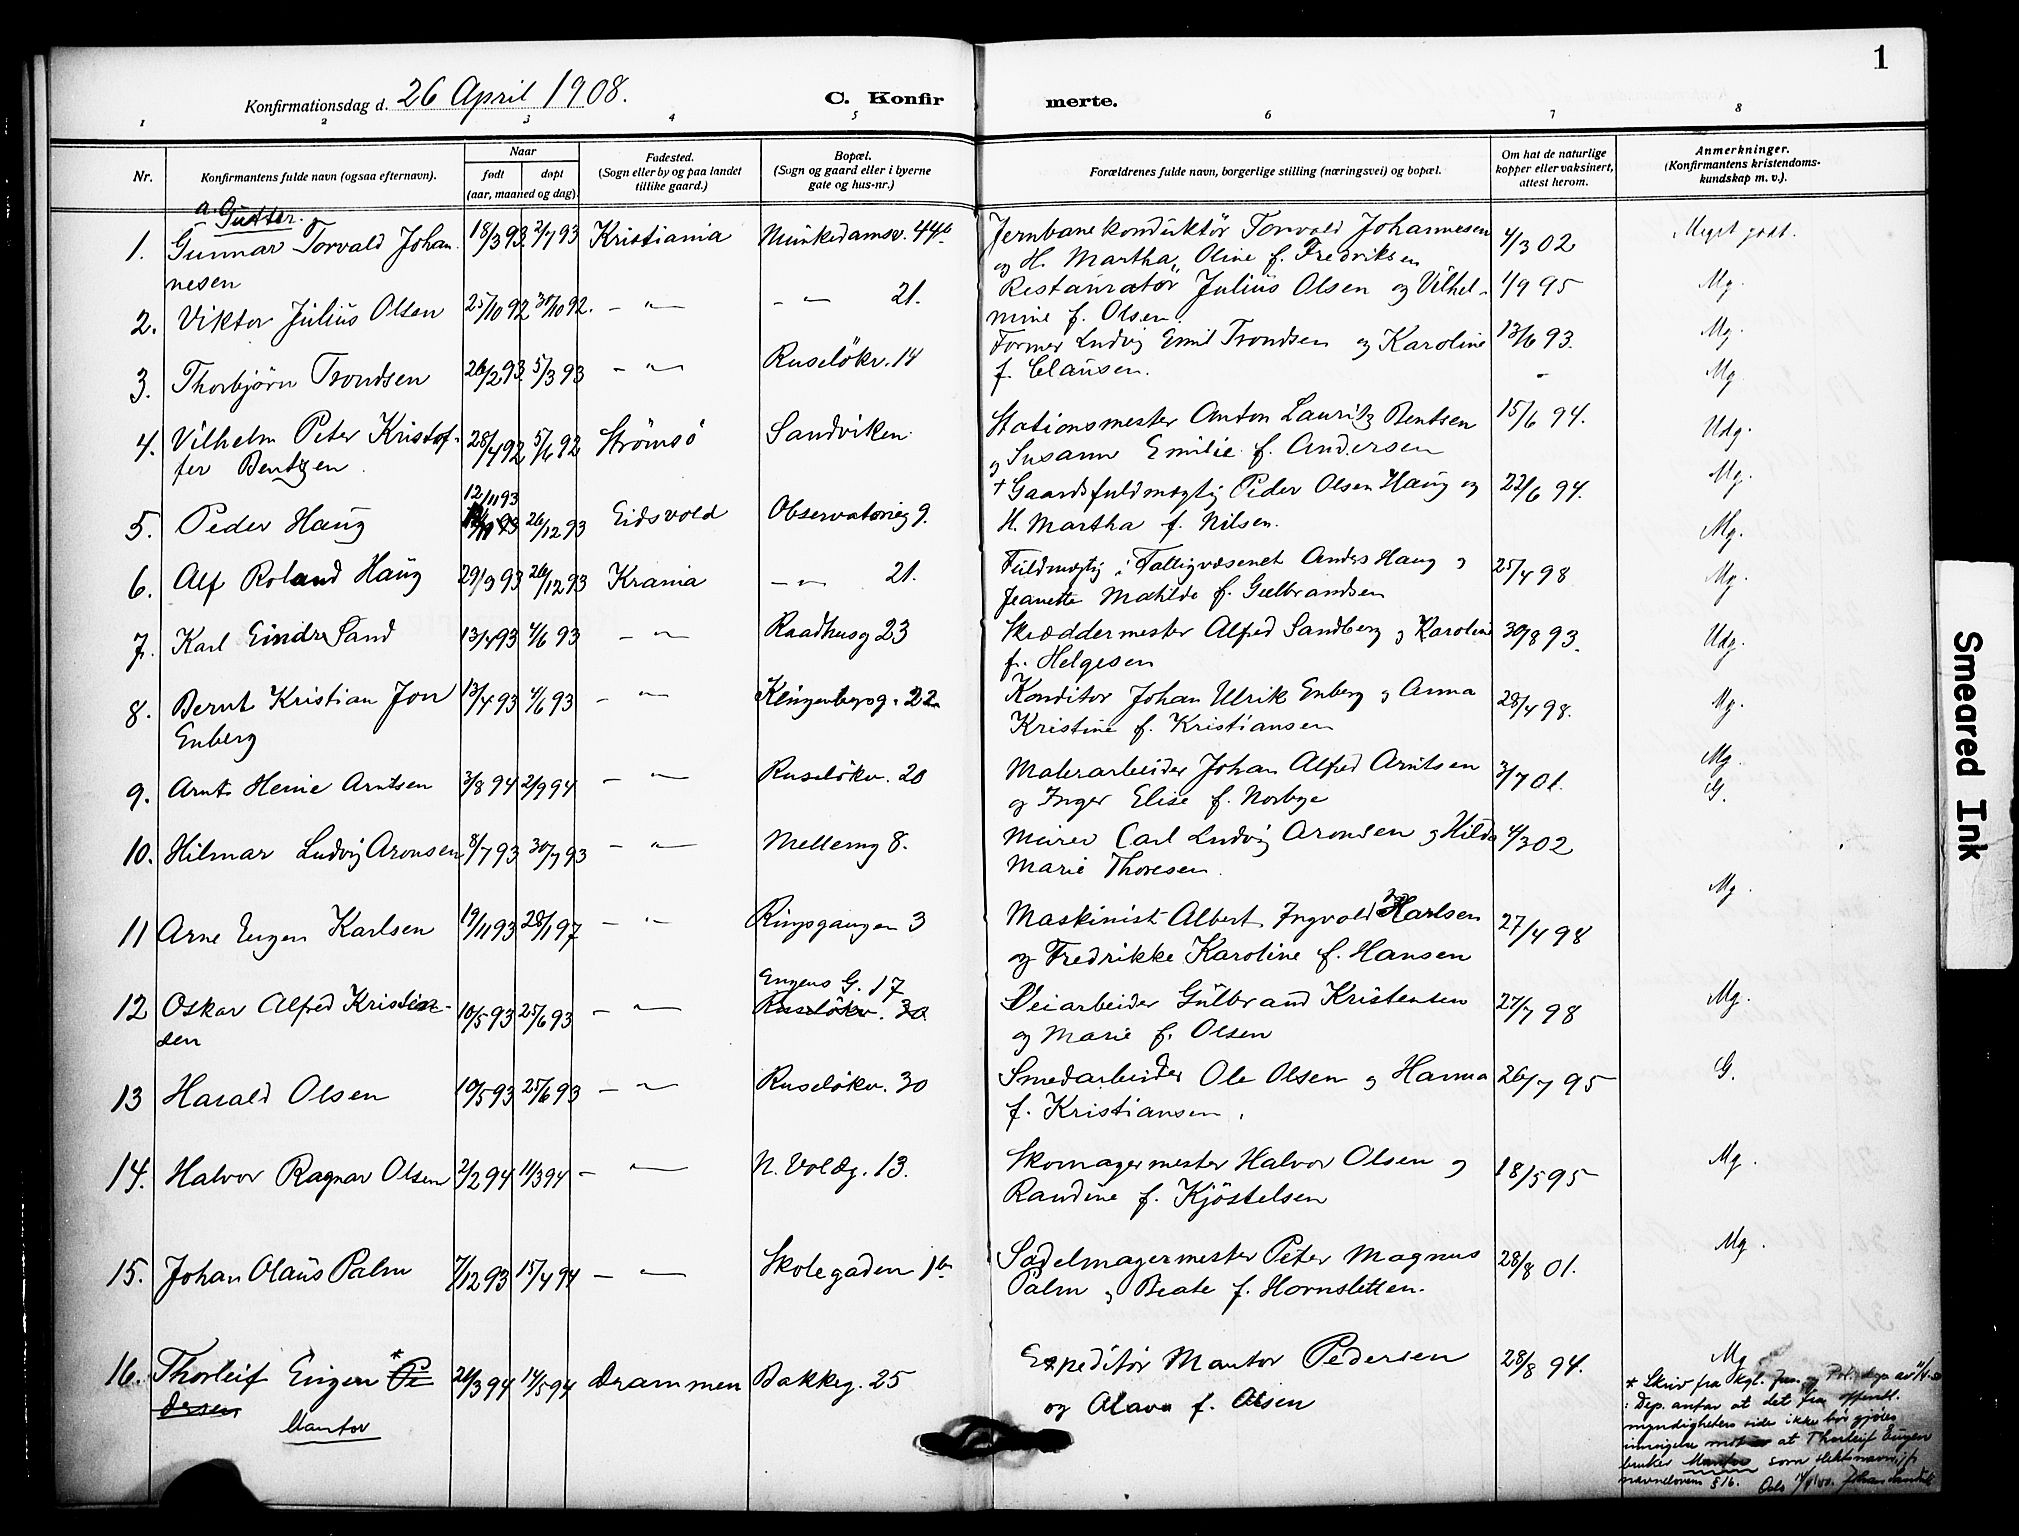 1
Konfirmationsdag d. 26 April 1908.
C. Konfirmerte.
1 2 3 4 5 6 7 8
Nr.
Konfirmantens fulde navn (ogsaa efternavn).
Naar
født
døpt
(aar, maaned og dag)
Fødested.
(Sogn eller by og paa landet
tillike gaard.)
Bopæl.
(Sogn og gaard eller i byerne
gate og hus-nr.)
Forældrenes fulde navn, borgerlige stilling (næringsvei) og bopæl.
Om hat de naturlige
kopper eller vaksinert,
attest herom.
Anmerkninger.
(Konfirmantens kristendoms-
kundskap m. v.).
a. Gutter.
1. Gunnar Torvald Johan- 18/3 93 2/7 93 Kristiania Munkedamsv. 44b Jernbanekonduktør Torvald Johannesen 4/3 02 Meget godt.
nesen og H. Martha Oline f. Fredriksen
2. Viktor Julius Olsen 25/10 92 30/10 92. - " - - " - 21. Restauratør Julius Olsen og Vilhel- 1/9 95 Mg.
mine f. Olsen.
3. Thorbjørn Trondsen 26/2 93. 5/3 93 - " - Ruseløkv. 14 Former Ludvig Emil Trondsen og Karoline 13/6 93. Mg.
f. Clausen. Mg.
4. Vilhelm Peter Kristof- 28/4 92 5/6 92 Strömsö Sandviken Stationsmester Anton Lauritz Bentsen 15/6 94. Udg.
fer Bentzen og Susann Emilie f. Andersen
12/11 93
5. Peder Haug 26/12 93 Eidsvold Observatorieg 9. + Gaardsfuldmægtig Peder Olsen Haug og 22/6 94. Mg.
H. Martha f. Nilsen. Mg.
6. Alf Roland Haug 29/9 93 26/12 93 Krania - " - 21. Fuldmægtig i Fattigvæsenet Anders Haug og 25/4 98 Mg.
Jeanette Mathilde f. Gulbrandsen
7. Karl Eindre Sand 13/4 93 4/6 93 - " - Raadhusg 23 Skræddermester Alfred Sandberg og Karoline 30/8 93. Udg.
f. Helgesen
8. Bernt Kristian Jon 13/4 93 4/6 93 - " - Klingenbergg. 22 Konditor Johan Ulrik Enberg og Anna 28/4 98. Mg.
Enberg Kristine f. Kristiansen
9. Arnt Heine Arntsen 3/8 94 2/9 94 - " - Ruseløkv. 20 Malerarbeider Johan Alfred Arntsen 3/7 01. Mg.
og Inger Elise f. Norbye G.
10. Hilmar Ludvig Aronsen 8/7 93 30/7 93 - " - Mellemg 8. Murer Carl Ludvig Aronsen og Hilda 4/3 02
Marie Thoresen. Mg.
11 Arne Eugen Karlsen 19/11 93 28/1 97 - " - Ringsgangen 3 Maskinist Albert Ingvald Karlsen 27/4 98
og Fredrikke Karoline f. Hansen
Eugens G. 17
12 Oskar Alfred Kristian- 10/5 93 25/6 93 - " - Ruseløkv. 30 Veiarbeider Gulbrand Kristensen 27/7 98 Mg.
sen og Marie f. Olsen
13 Harald Olsen 19/5 93 25/6 93 - " - Ruseløkv. 30 Smedarbeider Ole Olsen og Hanna 26/7 95 G.
f. Kristiansen.
14. Halvor Ragnar Olsen 2/2 94 11/3 94 - " - N. Voldg. 13. Skomagermester Halvor Olsen og 18/5 95 Mg.
Randine f. Kjöstelsen
15. Johan Olaus Palm 7/12 93 15/4 94 - " - Skolegaden 1b Sadelmagermester Peter Magnus 28/8 01. Mg.
Palm og Beate f. Hornsletten.
16. Thorleif Eugen * Pe 26/3 94 14/5 94 Drammen Bakkeg. 25 Expeditör Mantor Pedersen 28/8 94. Mg
dersen og Olava f. Olsen
Mantor
* Skriv fra Kgl.
: Dep. anfør at det fra offentl.
myndigheters side ikke bør gjøres
at Thorleif Eugen
bruker Mantor som slektsnavn, jfr
navneloven § 16. Oslo
Smeared Ink